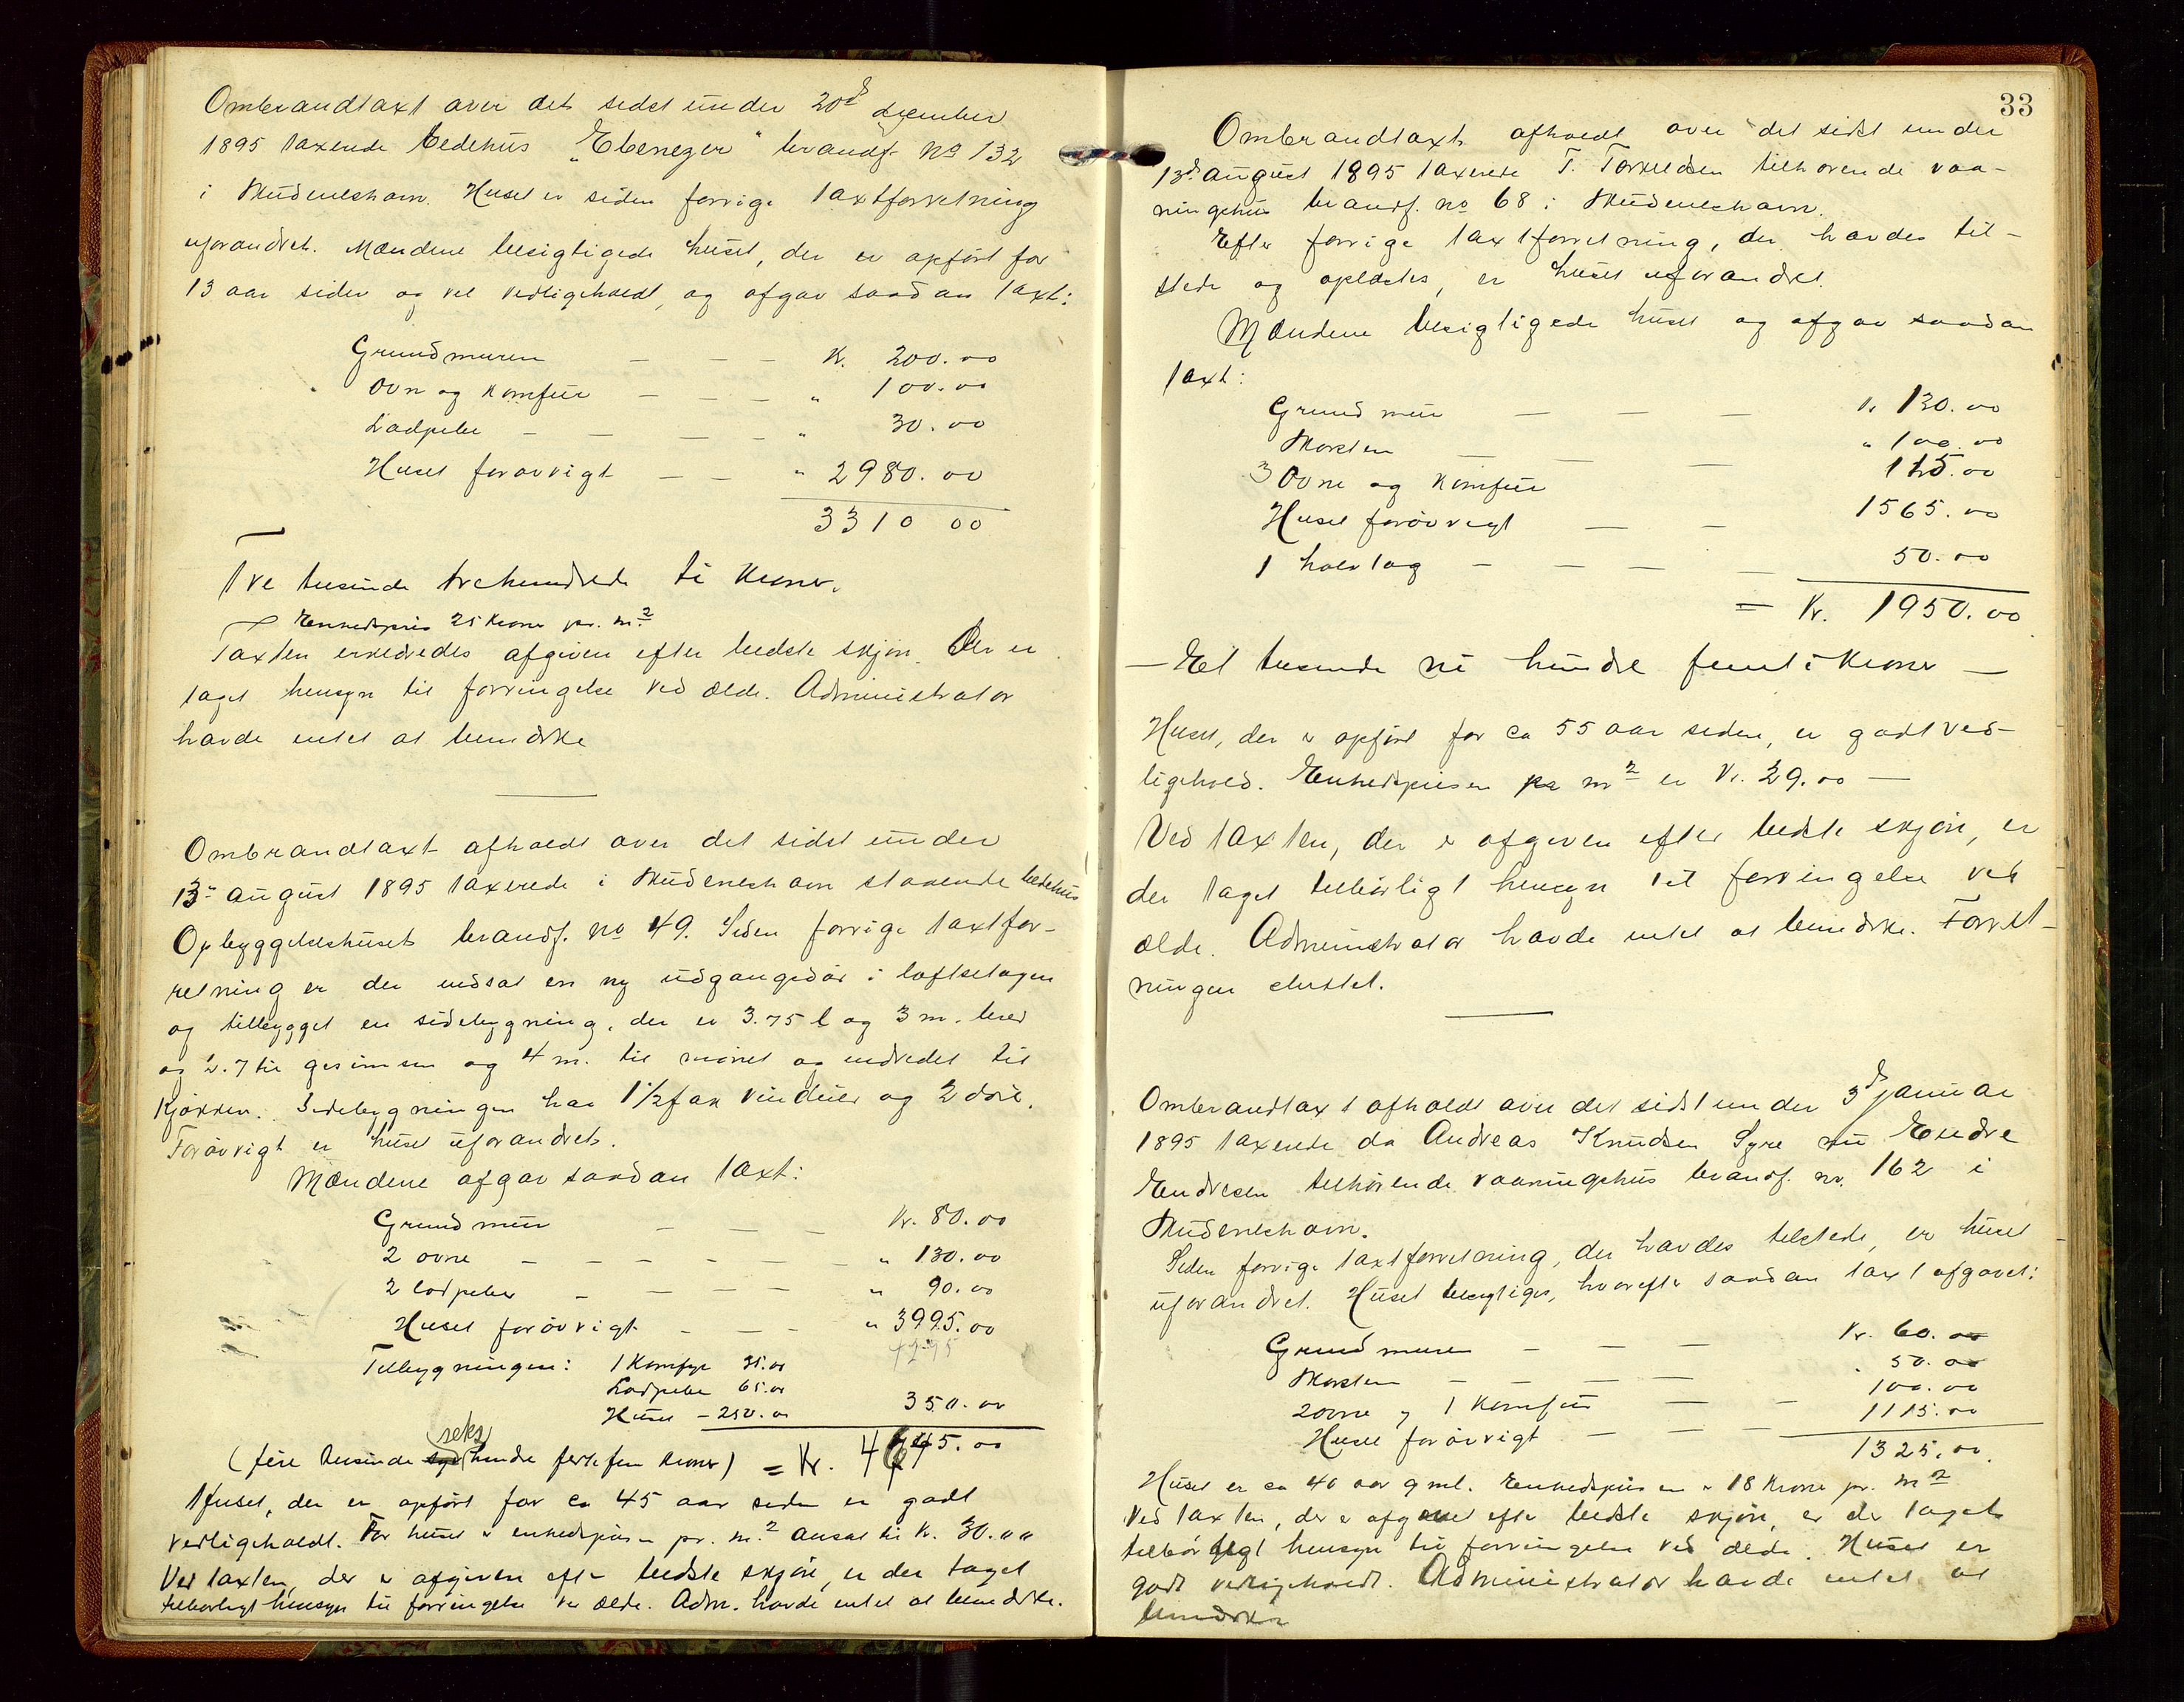 Ombrandtaxt over det sidst under 20d december
1895 taxerede Bedehus "Ebenezer" brandf. No 132
i Skudeneshavn. Huset er siden forrige taxtforretning
uforandret. Mændene besigtigede huset, der er opført for
13 aar siden og vel vedligeholdt, og afgav saadan taxt:
Grundmuren — — — K. 200.00
Ovn og Komfur — — — " 100.00
Ladpibe — — — — " 30.00
Huset forøvrigt — — " 2980.00
3310 00
Tre tusinde trehundrede ti Kroner.
Enhedspris 25 Kroner pr. m2
Taxten erklæredes afgiven efter bedste skjøn. Der er
taget hensyn til forringelse ved ælde. Administrator
havde intet at bemærke
Ombrandtaxt afholdt over det sidst under
13de august 1895 taxerede i Skudeneshavn staaende bedehus
Opbyggelseshuset brandf. No 49. Siden forrige taxtfor-
retning er der indsat en ny udgangsdør i loftsetagen
og tilbygget en sidebygning, der er 3.75 l og 3 m. bred
og 2.7 til gesimsen og 4 m. til mønet og indredet til
Kjøkken. Sidebygningen har 1 1/2 fak vinduer og 2 døre.
Forøvrigt er huset uforandret.
Mændene afgav saadan taxt:
Grundmur — — — Kr. 80.00
2 ovne — — — — — — " 130.00
2 ladpiber — — — — " 90.00
Huset forøvrigt — — — " 3995.00
Tilbygningen: 1 Komfyr 35.00
Ladpibe 65.00
Huset — 250.00 350.00
(fire tusinde seks hundre førtefem kroner) = Kr. 4645.00
Huset, der er opført for ca 45 aar siden er godt
vedligeholdt. For huset er enhedsprisen pr. m2 ansat til Kr. 30.00
Ved taxten, der er afgiven efter bedste skjøn, er der taget
tilbørligt hensyn til forringelse ved ælde. Adm. havde intet at bemærke.
33
Ombrandtaxt afholdt over det sidst under
13de august 1895 taxerede T. Torkeldsen tilhørende vaa-
ningshus brandf. no 68 i Skudeneshavn.
Efter forrige taxtforretning, der havdes til-
stede og oplæstes, er huset uforandret.
Mændene besigtigede huset og afgav saadan
taxt:
Grundmur — — — Kr 130.00
Skorsten — — — " 100.00
3 Ovne og Komfur 105.00
Huset forøvrigt — — 1565.00
1 halvtag — — — — 50.00
= Kr. 1950.00
— Et tusinde ni hundre femti Kroner —
Huset, der er opført for ca 55 aar siden, er godt ved-
ligehold. Enhedsprisen pr m2 er Kr. 29.00 —
Ved taxten, der er afgiven efter bedste skjøn, er
der taget tilbørligt hensyn til forringelse ved
ælde. Administrator havde intet at bemærke. Forret-
ningen sluttet.
Ombrandtaxt afholdt over det sidst under 3d januar
1895 taxerede da Andreas Knudsen Syre nu Endre
Endresen tilhørende vaaningshus brandf. no. 162 i
Skudeneshavn.
Siden forrige taxtforretning, der havdes tilstede, er huset
uforandret. Huset besigtiges, hvorefter saadan taxt afgavet:
Grundmuren — — — Kr. 60.00
Skorsten — — — — 50.00
2 ovne og 1 Komfur — — 100.00
Huset forøvrigt — — — 1115.00
1325.00
Huset er ca 40 aar gml. Enhedsprisen er 18 Krone pr. m2
Ved taxten, der er afgivet efter bedste skjøn, er der taget
tilbørligt hensyn til forringelse ved ælde. Huset er
godt vedligeholdt. Administrator havde intet at
bemærke